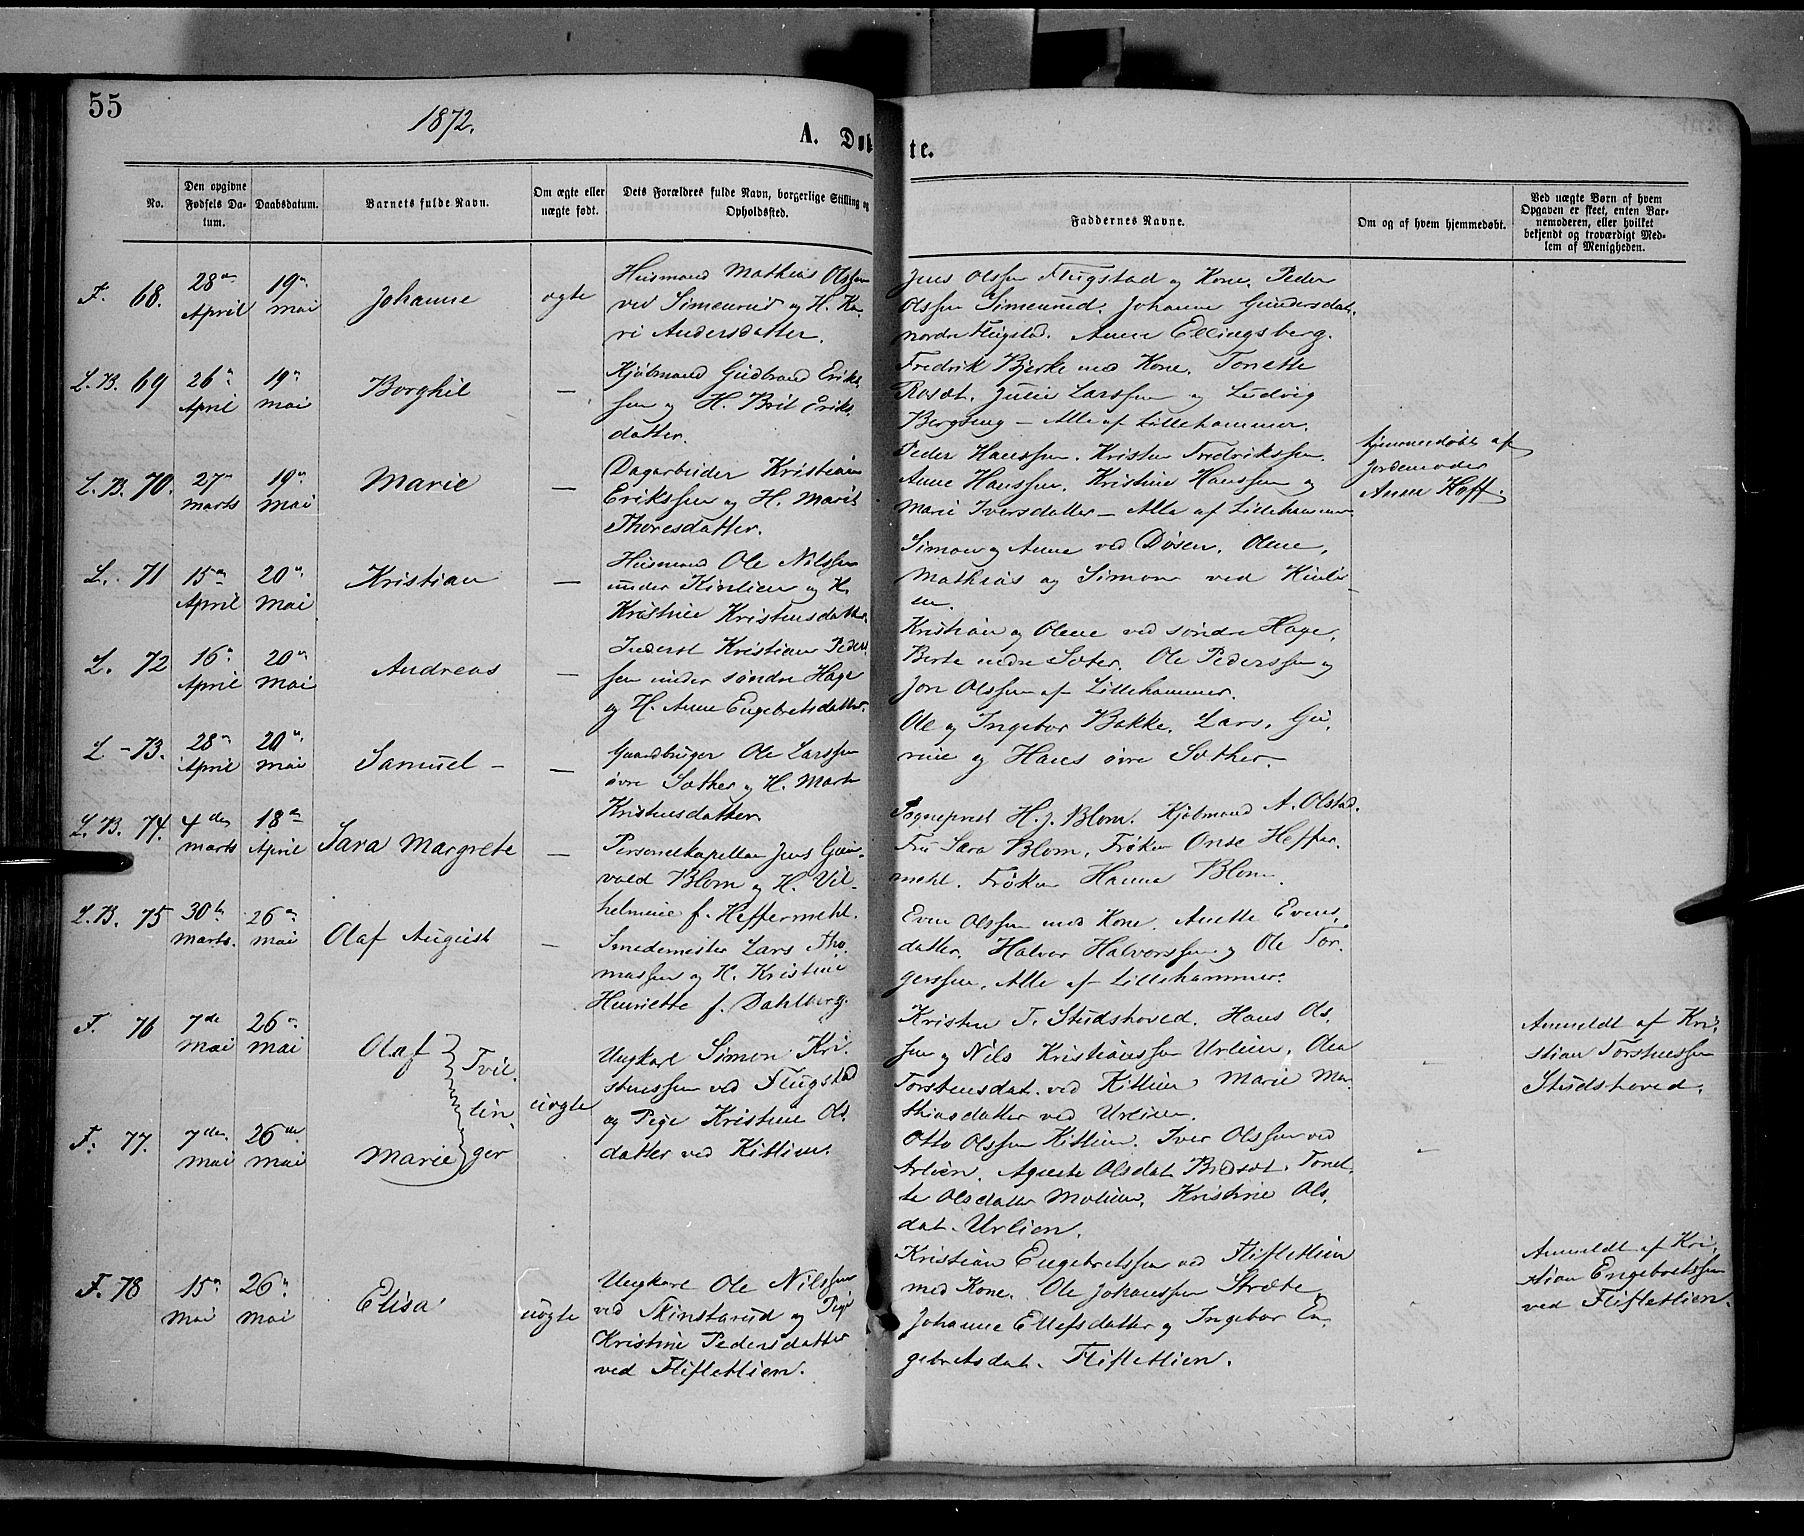 55
1872.
A. Døbte.
No.
Den opgivne Fødsels Da-
tum.
Daabsdatum.
Barnets fulde Navn.
Om ægte eller
uægte født.
Dets Forældres fulde Navn, borgerlige Stilling og
Opholdssted.
Faddernes Navne.
Om og af hvem hjemmedøbt.
Ved uægte Børn af hvem
Opgaven er skeet, enten Bar-
nemoderen, eller hvilket
bekjendt og troværdigt Med-
lem af Menigheden.
F. 68.
28de April
19de mai
Johanne
ægte
Husmand Mathias Olssen
ved Simenrud og H. Ka-
ri Andersdatter.
Jens Olssen Flugstad og Kone. Peder
Olssen Simenrud. Johanne Gundersdat.
nordre Flugstad. Anne Ellingsberg.
L.B. 69
26de April
19de mai
Borghil
—
Kjøbmand Gudbrand Erik-
sen og H. Brit Eriks-
datter.
Fredrik Bjerke med Kone. Tonette
Julie Larssen og Ludvig
Bergseng — Alle af Lillehammer.
L.B. 70.
27de marts
19de mai
Marie
—
Dagarbeider Kristian
Erikssen og H. Marit
Thoresdatter.
Peder Hanssen. Kristen Fredrikssen.
Anne Hanssen. Kristine Hanssen og
Marie Iversdatter — Alle af Lillehammer
hjemmedøbt af
Jordemoder
Anne Hoff.
L. 71
15de April
20de Mai
Kristian
—
Husmand Ole Nilssen
under Kinlien og H.
Kristine Kristensdatter.
Simon og Anne ved Døsen. Olene,
Mathias og Simon ved Kinli-
en.
L. 72
16de April
20de Mai
Andreas
—
Inderst Kristian Peder-
sen under søndre Hage
og H. Anne Engebretsdatter.
Kristian og Olene ved søndre Hage.
Berte nedre Sæter. Ole Pederssen og
Jon Olssen af Lillehammer.
L - 73.
28de April
20de Mai
Samuel -
—
Gaardbruger Ole Larssen
øvre Sæther og H. Marte
Kristensdatter
Ole og Ingebor Bakke. Lars, Gu-
rine og Hans øvre Sæther.
L.B. 74.
4de marts
18de April
Sara Margrete
—
Personelkapellan Jens Gun-
vald Blom og H. Vil-
helmine f. Heffermehl.
Sogneprest H. J. Blom. Kjøbmand A. Olstad.
Fru Sara Blom. Frøken Heffer-
mehl. Frøken Hanne Blom.
L.B. 75
30te marts.
26de mai
Olaf August
—
Smedemester Lars Tho-
massen og H. Kristine
Henriette f. Dahlberg.
Even Olssen med Kone. Anette Evens-
datter. Halvor Halvorssen og Ole Tor-
gerssen. Alle af Lillehammer.
F. 76
7de Mai
26de mai
Olaf
Tvil-
lin-
ger
uægte
Ungkarl Simon Kri-
stenssen ved Flugstad
og Pige Kristine Ols-
datter ved Kitlien.
Kristen T. Studshoved. Hans Ols-
sen og Nils Kristianssen Urlien. Olea
Torstensdat. ved Kitlien. Marie Ma-
thiasdatter ved Urlien.
Anmeldt af Kri-
stian Torstenssen
Studshoved.
F. 77.
7de mai
26de mai
Marie
Otto Olssen Kitlien. Iver Olssen ved
Urlien. Agnete Olsdat. Tonet-
te Olsdatter Molien. Kristine Ols-
dat. Urlien.
F. 78
15de mai
26de mai
Elisa
uægte
Ungkarl Ole Nilssen
ved Skinstarud og Pige
Kristine Pedersdatter
ved Flifletlien.
Kristian Engebretssen ved Flifletlien
med Kone. Ole Johanssen Stræte.
Johanne Ellefsdatter og Ingebor En-
gebretsdat. Flifletlien.
Anmeldt af Kri-
stian Engebretssen
ved Flifletlien.